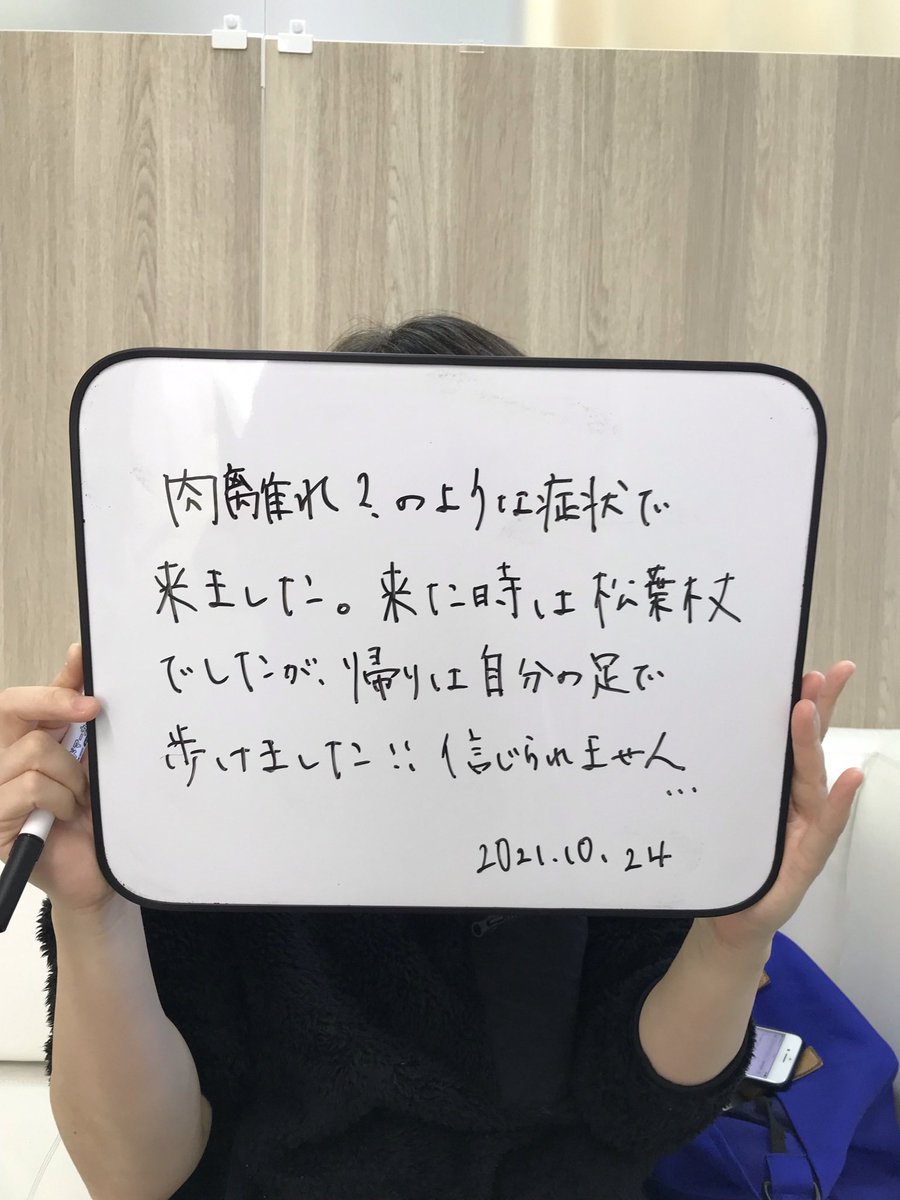 肉離れ?のような症状で
来ました。来た時は松葉杖
でしたが、帰りは自分の足で
歩けました!!信じられません
...
2021.10.24